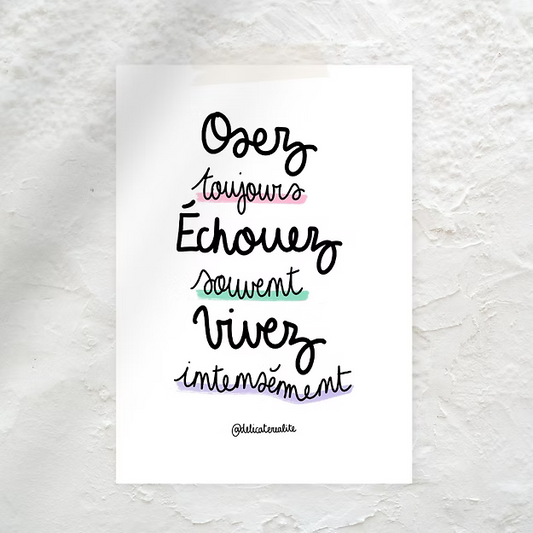 Osez
toujours
Échouez
souvent
Vivez
intensément
@delicaterealite